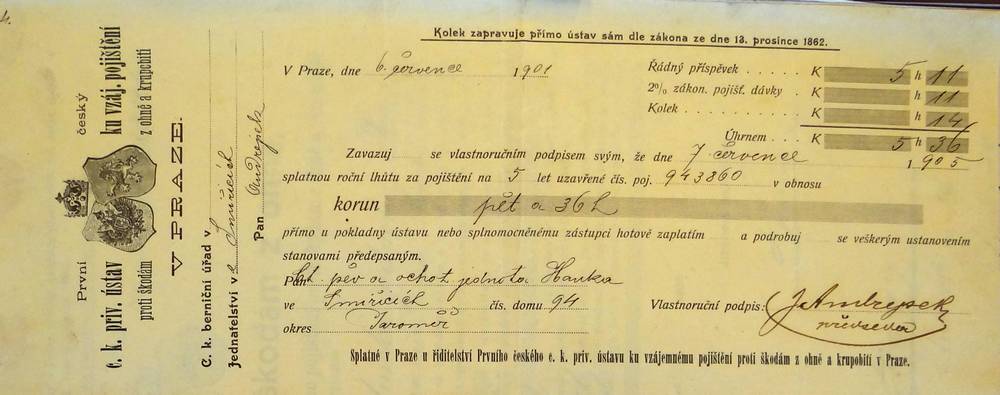 První český
c. k. priv. ústav ku vzáj. pojištění
proti škodám z ohně a krupobití
V PRAZE.
C. k. berniční úřad v
Jednatelství v Smiřicích
Pan Andrejsek
Kolek zapravuje přímo ústav sám dle zákona ze dne 13. prosince 1862.
V Praze, dne 6. července 1901
Řádný příspěvek K 5 h 11
2% zákon. pojišť. dávky K h 11
Kolek K h 14
Úhrnem K 5 h 36
Zavazuj se vlastnoručním podpisem svým, že dne 7. července 1905
splatnou roční lhůtu za pojištění na 5 let uzavřené čís. poj. 943860 v obnosu
korun pět a 36 h
přímo u pokladny ústavu nebo splnomocněnému zástupci hotově zaplatím a podrobuj se veškerým ustanovením
stanovami předepsaným.
Pan pěv a ochot jednota Hanka
ve Smiřicích čís. domu 94
okres Jaroměř
Vlastnoruční podpis: J Andrejsek
předseda
Splatné v Praze u ředitelství Prvního českého c. k. priv. ústavu ku vzájemnému pojištění proti škodám z ohně a krupobití v Praze.